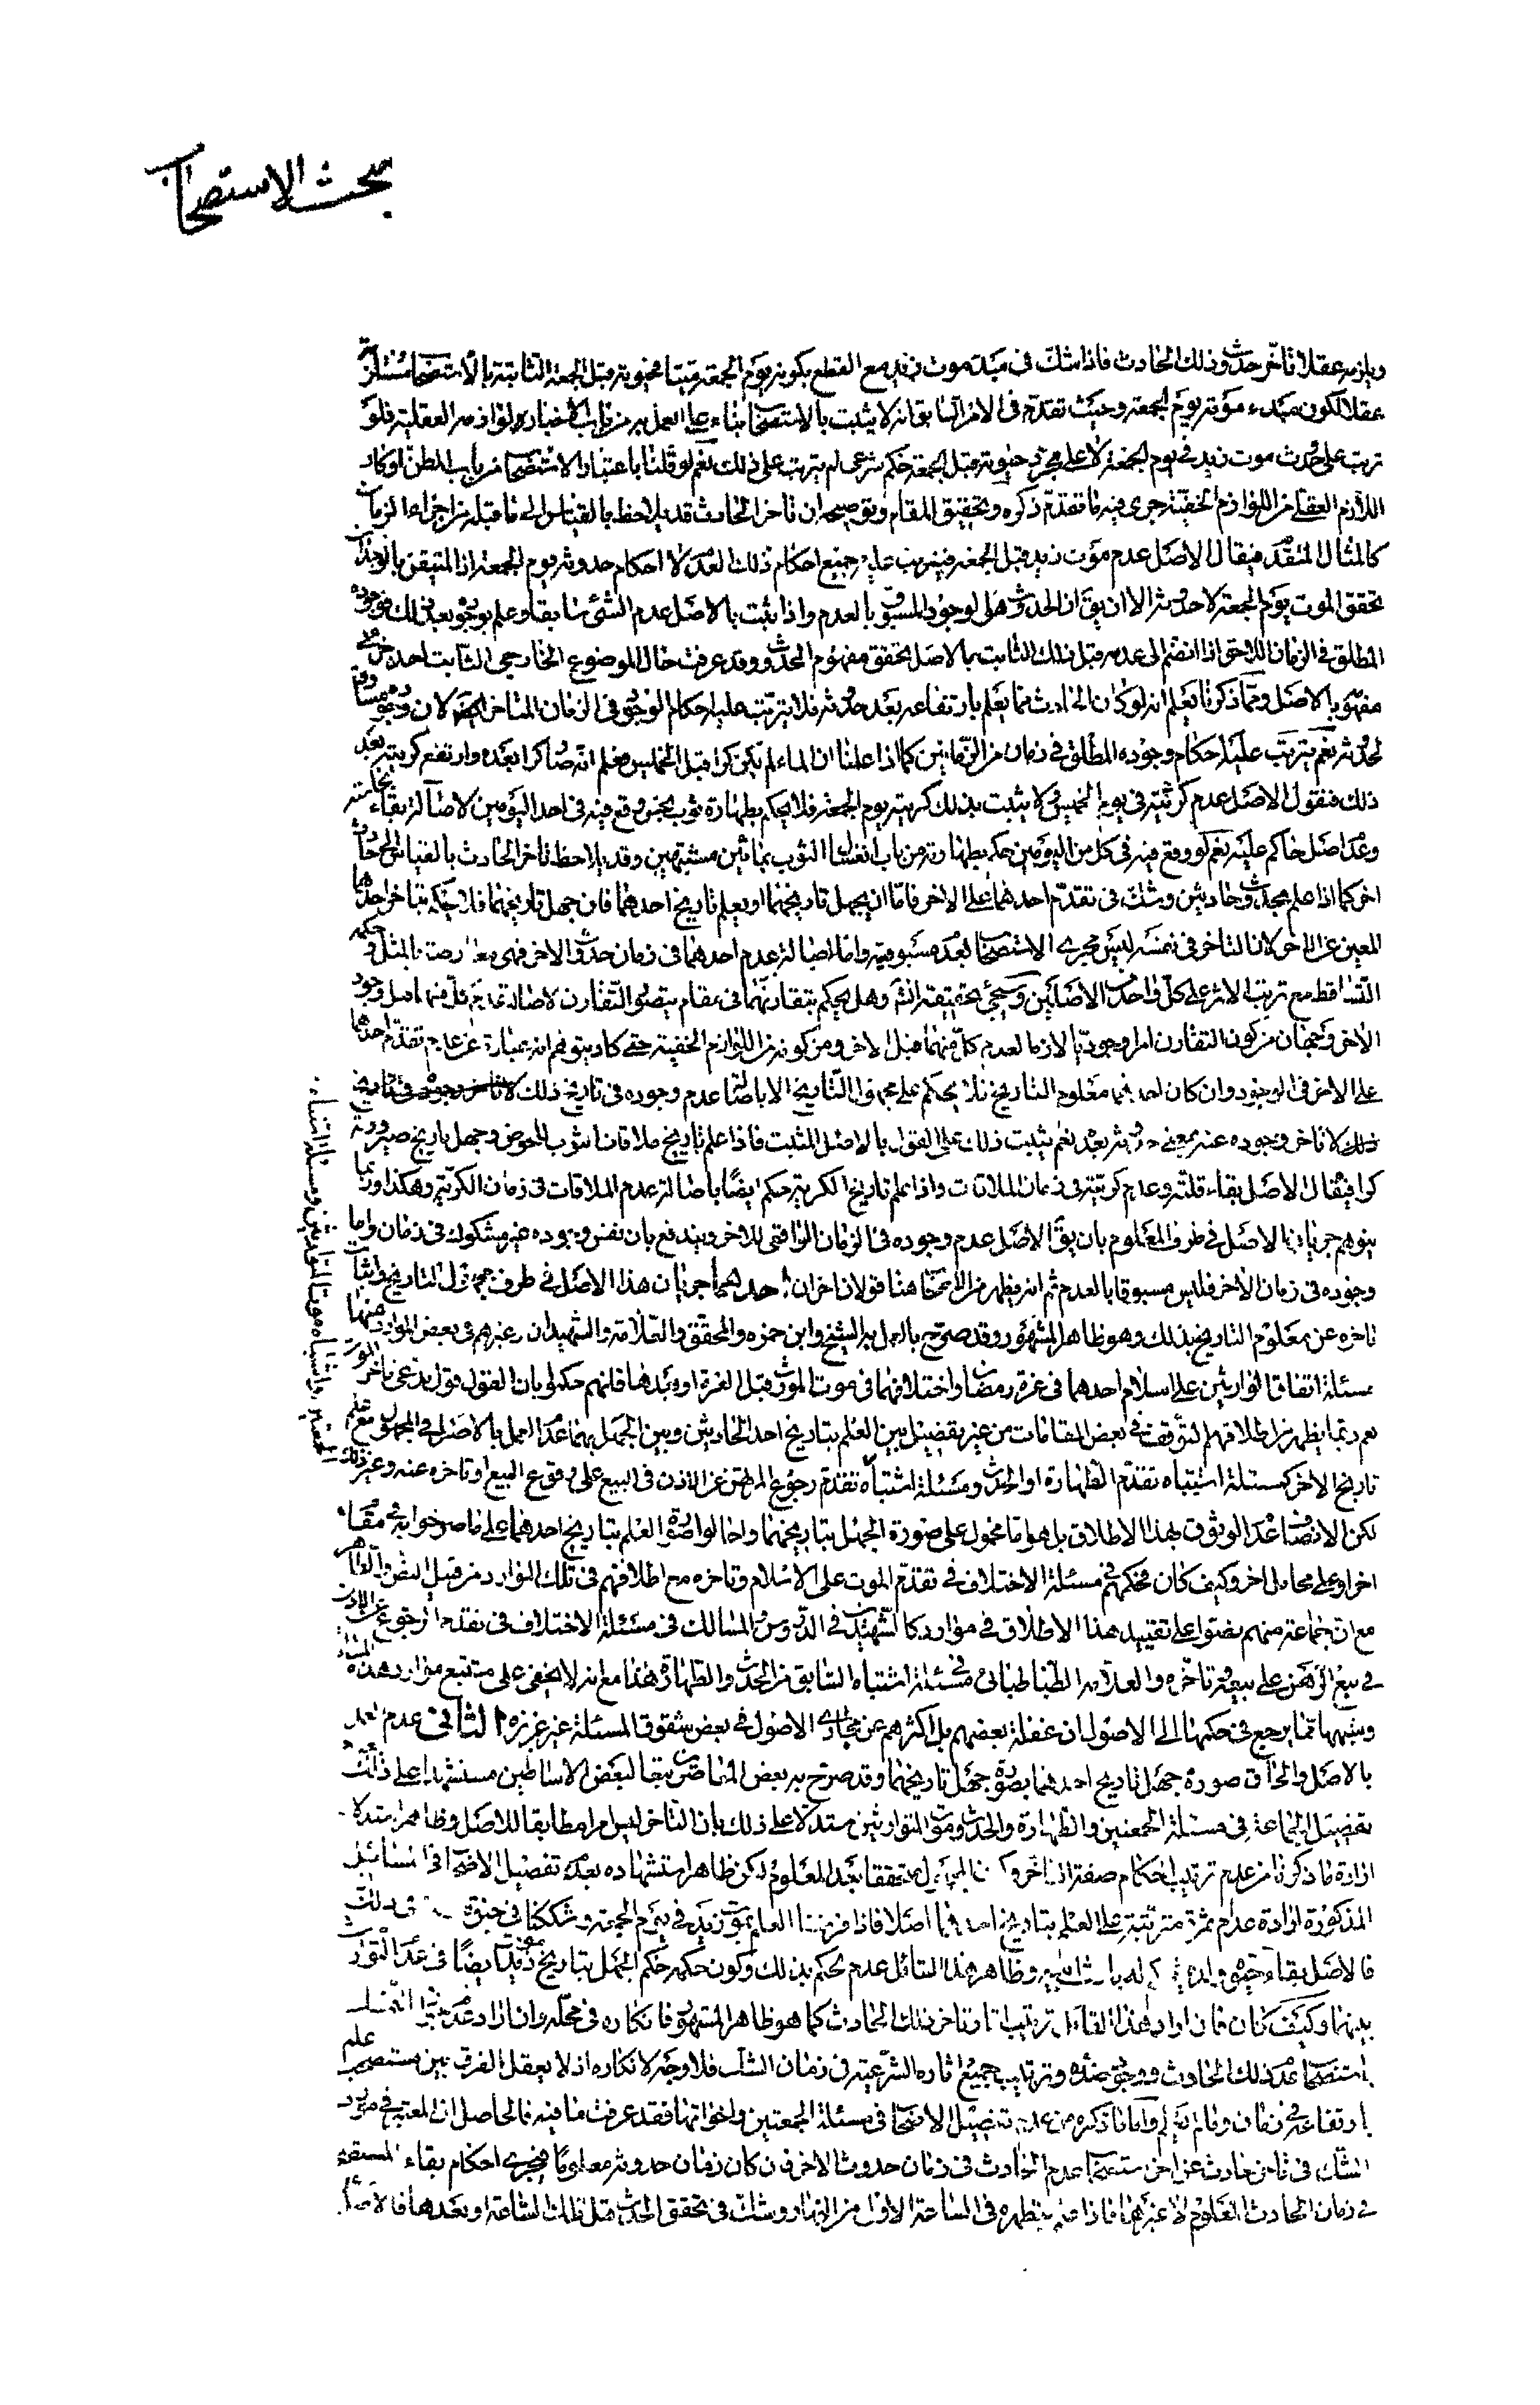 مبحث الاستصحاب
ويلزمه عقلا تأخر حدوث ذلك الحادث فاذا شك في مبدء موت زيد مع القطع بكونه يوم الجمعة ميتا فحيوته قبل الجمعة الثابتة بالاستصحاب مستلزمة
عقلا لكون مبدء موته يوم الجمعة وحيث تقدم في الامر السابق انه لا يثبت بالاستصحاب بناء على العمل به من باب الاخبار لوازمه العقلية فلو
ترتب على حدوث موت زيد في يوم الجمعة لا على مجرد حيوته قبل الجمعة حكم شرعي لم يترتب على ذلك نعم لو قلنا باعتبار الاستصحاب من باب الظن او كان
اللازم العقلي من اللوازم الخفية جرى فيه ما تقدم ذكره وتحقيق المقام وتوضيحه ان تأخر الحادث قد يلاحظ بالقياس الى ما قبله من اجزاء الزمان
كالمثال المتقدم فيقال الاصل عدم موت زيد قبل الجمعة فيترتب عليه جميع احكام ذلك العدم لا احكام حدوثه يوم الجمعة اذ المتيقن بالوجدان
تحقق الموت يوم الجمعة لا حدوثه الا ان يق ان الحدوث هو الوجود المسبوق بالعدم واذا ثبت بالاصل عدم الشئ سابقا وعلم بوجوده بعد ذلك فوجوده
المطلق في الزمان اللاحق اذا انضم الى عدمه قبل ذلك الثابت بالاصل تحقق مفهوم الحدوث وقد عرفت حال الموضوع الخارجي الثابت احد جزئي
مفهومه بالاصل ومما ذكرنا يعلم انه لو كان الحادث مما يعلم بارتفاعه بعد حدوثه فلا يترتب عليه احكام الوجود في الزمان المتأخر ايضا لان وجوده مساوق
لحدوثه نعم يترتب عليه احكام وجوده المطلق في زمان من الزمانين كما اذا علمنا ان الماء لم يكن كرا قبل الخميس فعلم انه صار كرا بعده وارتفع كريته بعد
ذلك فنقول الاصل عدم كريته في يوم الخميس ولا يثبت بذلك كريته يوم الجمعة فلا يحكم بطهارة ثوب نجس وقع فيه في احد اليومين لاصالة بقاء نجاسته
وعدم اصل حاكم عليه نعم لو وقع فيه في كل من اليومين حكم بطهارته من باب انغسال الثوب بمائين مشتبهين وقد يلاحظ تأخر الحادث بالقياس الى حادث
اخر كما اذا علم بحدوث حادثين وشك في تقدم احدهما على الاخر فاما ان يجهل تاريخهما او يعلم تاريخ احدهما فان جهل تاريخهما فلا يحكم بتأخر احدهما
المعين عن الاخر لان التأخر في نفسه ليس مجرى الاستصحاب لعدم مسبوقيته واما اصالة عدم احدهما في زمان حدوث الاخر فهي معارضة بالمثل وحكمه
التساقط مع ترتب الاثر على كل واحد من الاصلين وسيجئ تحقيقه انشاء الله وهل يحكم بتقارنهما في مقام يتصور التقارن لاصالة عدم كل منهما قبل وجود
الاخر وجهان من كون التقارن امرا وجوديا لازما لعدم كل منهما قبل الاخر ومن كونه من اللوازم الخفية حتى كاد يتوهم انه عبارة عن عدم تقدم احدهما
على الاخر في الوجود وان كان احدهما معلوم التاريخ فلا يحكم على مجهول التاريخ الا باصالة عدم وجوده في تاريخ ذلك لا تأخر وجوده في تاريخ
ذلك لا تأخر وجوده عنه بمعنى حدوثه بعده نعم يثبت ذلك على القول بالاصل المثبت فاذا علم تاريخ ملاقاة الثوب للحوض وجهل تاريخ صيرورته
كرا فيقال الاصل بقاء قلته وعدم كريته في زمان الملاقات واذا علم تاريخ الكرية حكم ايضا باصالة عدم الملاقات في زمان الكرية وهكذا وربما
يتوهم جريان الاصل في طرف المعلوم بان يق الاصل عدم وجوده في الزمان الواقعي للاخر ويندفع بان نفس وجوده غير مشكوك في زمان واما
وجوده في زمان الاخر فليس مسبوقا بالعدم ثم انه يظهر من الاصحاب هنا قولان اخران احدهما جريان هذا الاصل في طرف مجهول التاريخ واثبات
تاخره عن معلوم التاريخ بذلك وهو ظاهر المشهور وقد صرح بالعمل به الشيخ وابن حمزه والمحقق والعلامة والشهيدان وغيرهم في بعض الموارد منها
مسئلة اتفاق الوارثين على اسلام احدهما في غرة رمضان واختلافهما في موت المورث قبل الغرة او بعدها فانهم حكموا بان القول قول مدعي تأخر الموت
نعم ربما يظهر من اطلاقهم التوقف في بعض المقامات من غير تفصيل بين العلم بتاريخ احد الحادثين وبين الجهل بهما عدم العمل بالاصل في المجهول مع علم
تاريخ الاخر كمسئلة اشتباه تقدم الطهارة او الحدث ومسئلة اشتباه الجمعتين واشتباه موت المتوارثين ومسئلة اشتباه تقدم رجوع المرتهن عن الاذن في البيع على وقوع البيع او تاخره عنه وغير ذلك
لكن الانصاف عدم الوثوق بهذا الاطلاق بل هو اما محمول على صورة الجهل بتاريخهما واحالوا صورة العلم بتاريخ احدهما على ما صرحوا به في مقام
اخر او على محامل اخر وكيف كان فحكمهم في مسئلة الاختلاف في تقدم الموت على الاسلام وتاخره مع اطلاقهم في تلك الموارد من قبيل النص والظاهر
مع ان جماعة منهم نصوا على تقييد هذا الاطلاق في موارد كالشهيدين في الدروس والمسالك في مسئلة الاختلاف في تقدم الرجوع عن الاذن
في بيع الرهن على بيعه وتاخره والعلامة الطباطبائي في مسئلة اشتباه السابق من الحدث والطهارة هذا مع انه لا يخفى على متتبع موارد هذه المسائل
وشبهها مما يرجع في حكمها الى الاصول ان غفلة بعضهم بل اكثرهم عن مجاري الاصول في بعض شقوق المسئلة غير عزيزه الثاني عدم العمل
بالاصل والحاق صورة جهل تاريخ احدهما بصورة جهل تاريخهما وقد صرح به بعض المعاصرين تبعا لبعض الاساطين مستشهدا على ذلك
بتفصيل الجماعة في مسئلة الجمعتين والطهارة والحدث وموت المتوارثين مستدلا على ذلك بان التأخر ليس امرا مطابقا للاصل وظاهر استدلاله
ارادة ما ذكرنا من عدم ترتيب احكام صفة التأخر وكون المجهول متحققا بعد المعلوم لكن ظاهر استشهاده بعدم تفصيل الاصحاب في المسائل
المذكورة ارادة عدم ثمرة مترتبة على العلم بتاريخ احدهما اصلا فاذا فرضنا العلم بموت زيد في يوم الجمعة وشككنا في حيوة
فالاصل بقاء حيوة ولده وظاهر هذا القائل عدم الحكم بذلك وكون حكمه حكم الجهل بتاريخ موت زيد ايضا في عدم التوارث
بينهما وكيف كان فان اراد هذا القائل ترتيب اثار تاخر ذلك الحادث كما هو ظاهر المشهور فانكاره في محله وان اراد عدم جواز التمسك
باستصحاب عدم ذلك الحادث ووجود ضده وترتيب جميع اثاره الشرعية في زمان الشك فلا وجه لانكاره اذ لا يعقل الفرق بين مستصحب علم
بارتفاعه في زمان وما لم يعلم واما ما ذكره من عدم تفصيل الاصحاب في مسئلة الجمعتين واخواتها فقد عرفت ما فيه فالحاصل ان المعتبر في مورد
الشك في تاخر حادث عن اخر استصحاب عدم الحادث في زمان حدوث الاخر فان كان زمان حدوثه معلوما فيجري احكام بقاء المستصحب
في زمان الحادث المعلوم لا غيرها فاذا علم بتطهره في الساعة الاولى من النهار وشك في تحقق الحدث قبل تلك الساعة او بعدها فالاصل